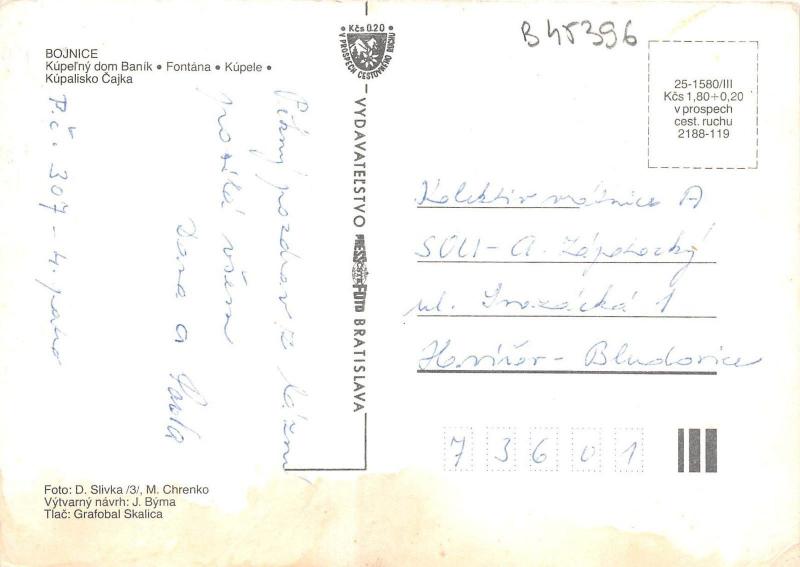 BOJNICE
Kúpeľný dom Baník • Fontána • Kúpele •
Kúpalisko Čajka
• Kčs 0.20 •
V PROSPECH CESTOVNÉHO RUCHU
B45396
25-1580/III
Kčs 1,80+0,20
v prospech
cest. ruchu
2188-119
Pěkný pozdrav z lázní
posílá všem
Dana a
P.č. 307 - 4. patro
VYDAVATEĽSTVO PRESSFOTO BRATISLAVA
Kolektiv vrátnice A
SOU - A. Zápotocký
ul. 1
Havířov - Bludovice
73601
Foto: D. Slivka /3/, M. Chrenko
Výtvarný návrh: J. Býma
Tlač: Grafobal Skalica